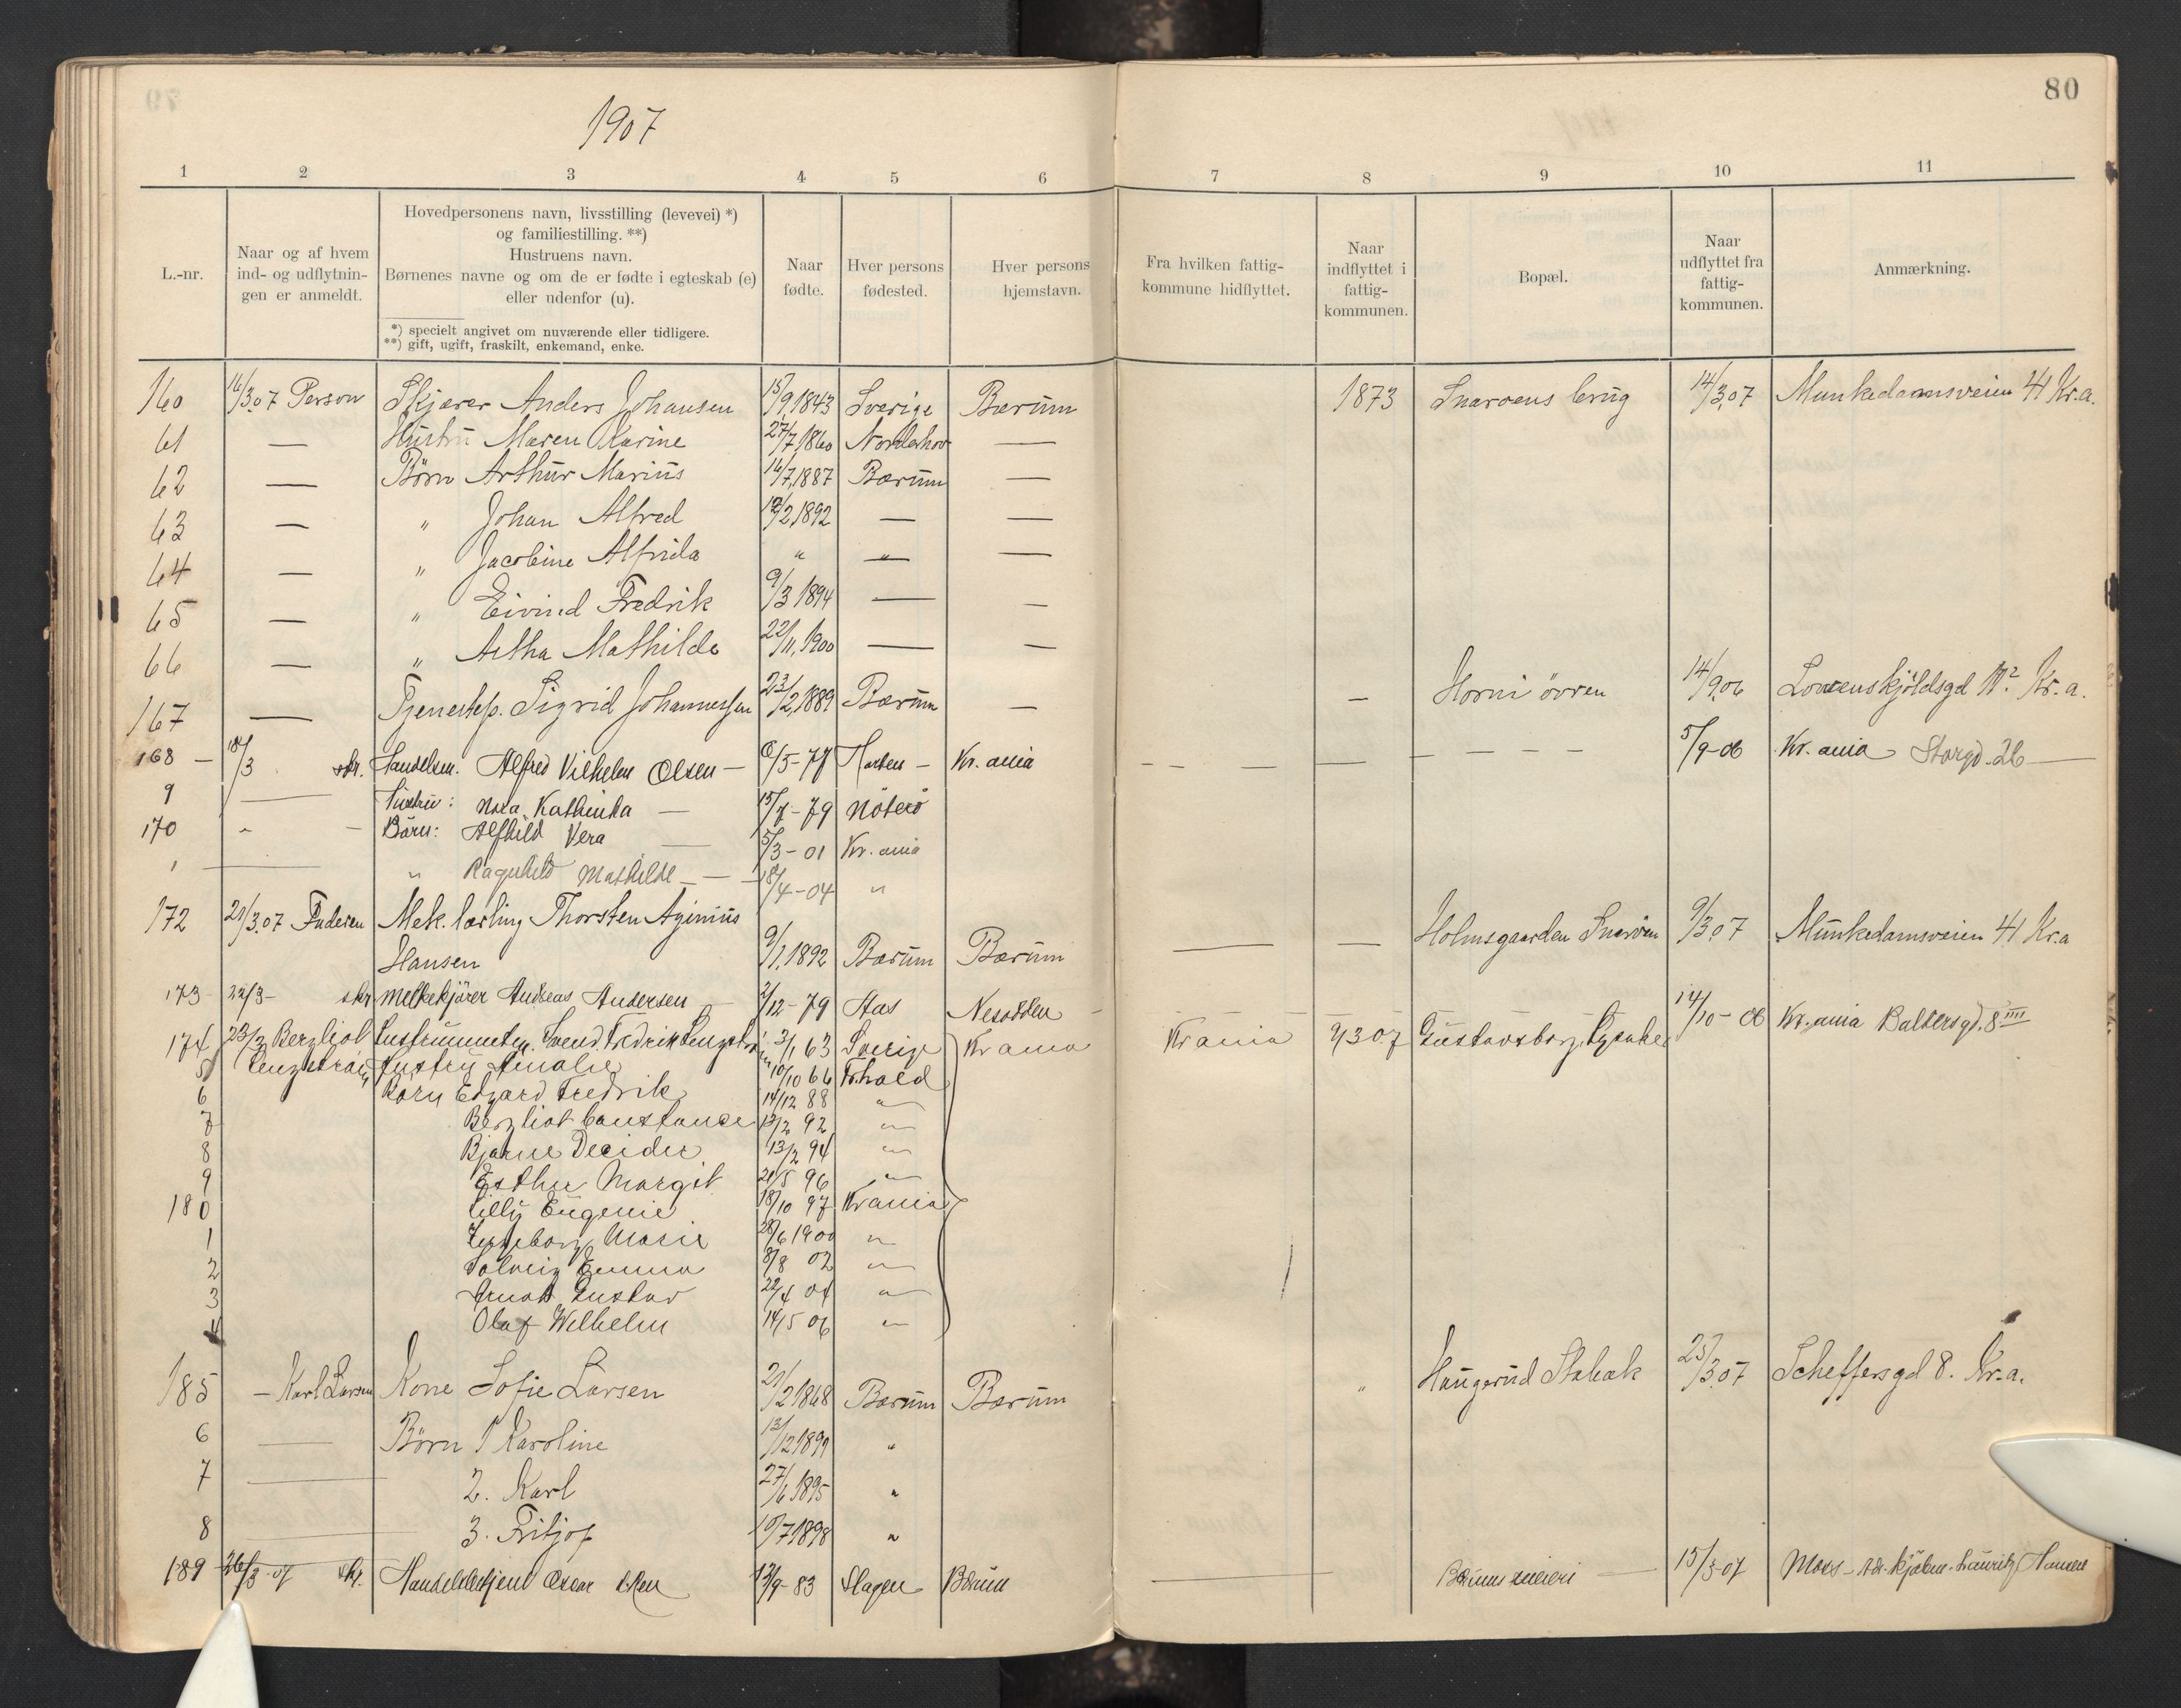 80
1907
1 2 3 4 5 6 7 8 9 10 11
L.-nr.
Naar og af hvem ind- og udflytnin- gen er anmeldt.
Hovedpersonens navn, livsstilling (levevei) *)
og familiestilling. **)
Hustruens navn.
Børnenes navne og om de er fødte i egteskab (e)
eller udenfor (u).
*) specielt angivet om nuværende eller tidligere.
**) gift, ugift, fraskilt, enkemand, enke.
Naar fødte.
Hver persons fødested.
Hver persons hjemstavn.
Fra hvilken fattig- kommune hidflyttet.
Naar indflyttet i fattig- kommunen.
Bopæl.
Naar udflyttet fra fattig- kommunen.
Anmærkning.
160 16/3.07 Person Skjærer Anders Johansen 15/9.1843 Sverige Bærum 1873 Snarøens brug 14/3.07 Munkedamsveien 41 Kr.a.
61 — Hustru Maren Karine 27/7.1860 Norderhov —
62 — Børn Arthur Marius 16/7.1887 Bærum —
63 — " Johan Alfred 12/2.1892 — —
64 — " Jacobine Alfrida " — —
65 — " Eivind Fredrik 9/3 1894 — —
66 — " Astha Mathilde 22/11.1900 — —
167 — Tjenestep. Sigrid Johannessen 23/2.1889 Bærum — — Horni övren 14/9.06 Lovenskjöldsgd Kr.a.
168 — 18/3 skr. Handelsm. Alfred Vilhelm Olsen — 6/5-77 Horten — Kr.ania — — — — 5/9-06 Kr.ania Storgd. 26 —
9 — Hustru: Nora Kathinka — 15/7-79 Nöterö
170 " — Børn: Alfhild Vera — 5/3-01 Kr.ania
1 — " Ragnhild Mathilde — — 18/4-04 "
172 21/3.07 Faderen Mek. lærling Thorsten Aginius
Hansen 9/1.1892 Bærum Bærum — — Holmsgaarden Snarøen 9/3.07 Munkedamsveien 41 Kr.a
173 22/3- skr Melkekjörer Andreas Andersen — 2/12-79 Aas Nesodden — 14/10-06 Kr.ania Baldersgd. 8 IIII
174 23/3 Bergliot Instrumentm. Svend Fredrik 3/1 63 Sverige Krania Krania 9/3 07 Gustavsborg, Lysaker
5 Hustru Amalie 10/10 66 Fr.hald
6 Børn Edvard Fredrik 14/12 88 "
7 Bergliot Constance 13/2 92 "
8 Bjarne Decider 13/2 94 "
9 Esther Margit 20/5 96 "
180 Lilly Eugenie 18/10 97 Krania
1 Ingeborg Marie 28/6 1900 "
2 Solveig Emma 8/8 02 "
3 Arnold Gustav 22/4 04 "
4 Olaf Wilhelm 14/5 06 "
185 — Karl Larsen Kone Sofie Larsen 21/2 1868 Bærum Bærum " Haugerud Stabæk 25/3.07 Scheffersgd 8. Kr.a.
6 — Børn 1 Karoline 13/12 1891 "
7 — 2. Karl 27/6 1895 "
8 — 3. Fritjof 10/7 1898 "
189 26/3-07 skr. Handelsbetjent Oscar 12/9-83 Slagen Bærum — Bærums meieri — 15/3-07 Moss — adr. kjöbm. Lauritz Hansen